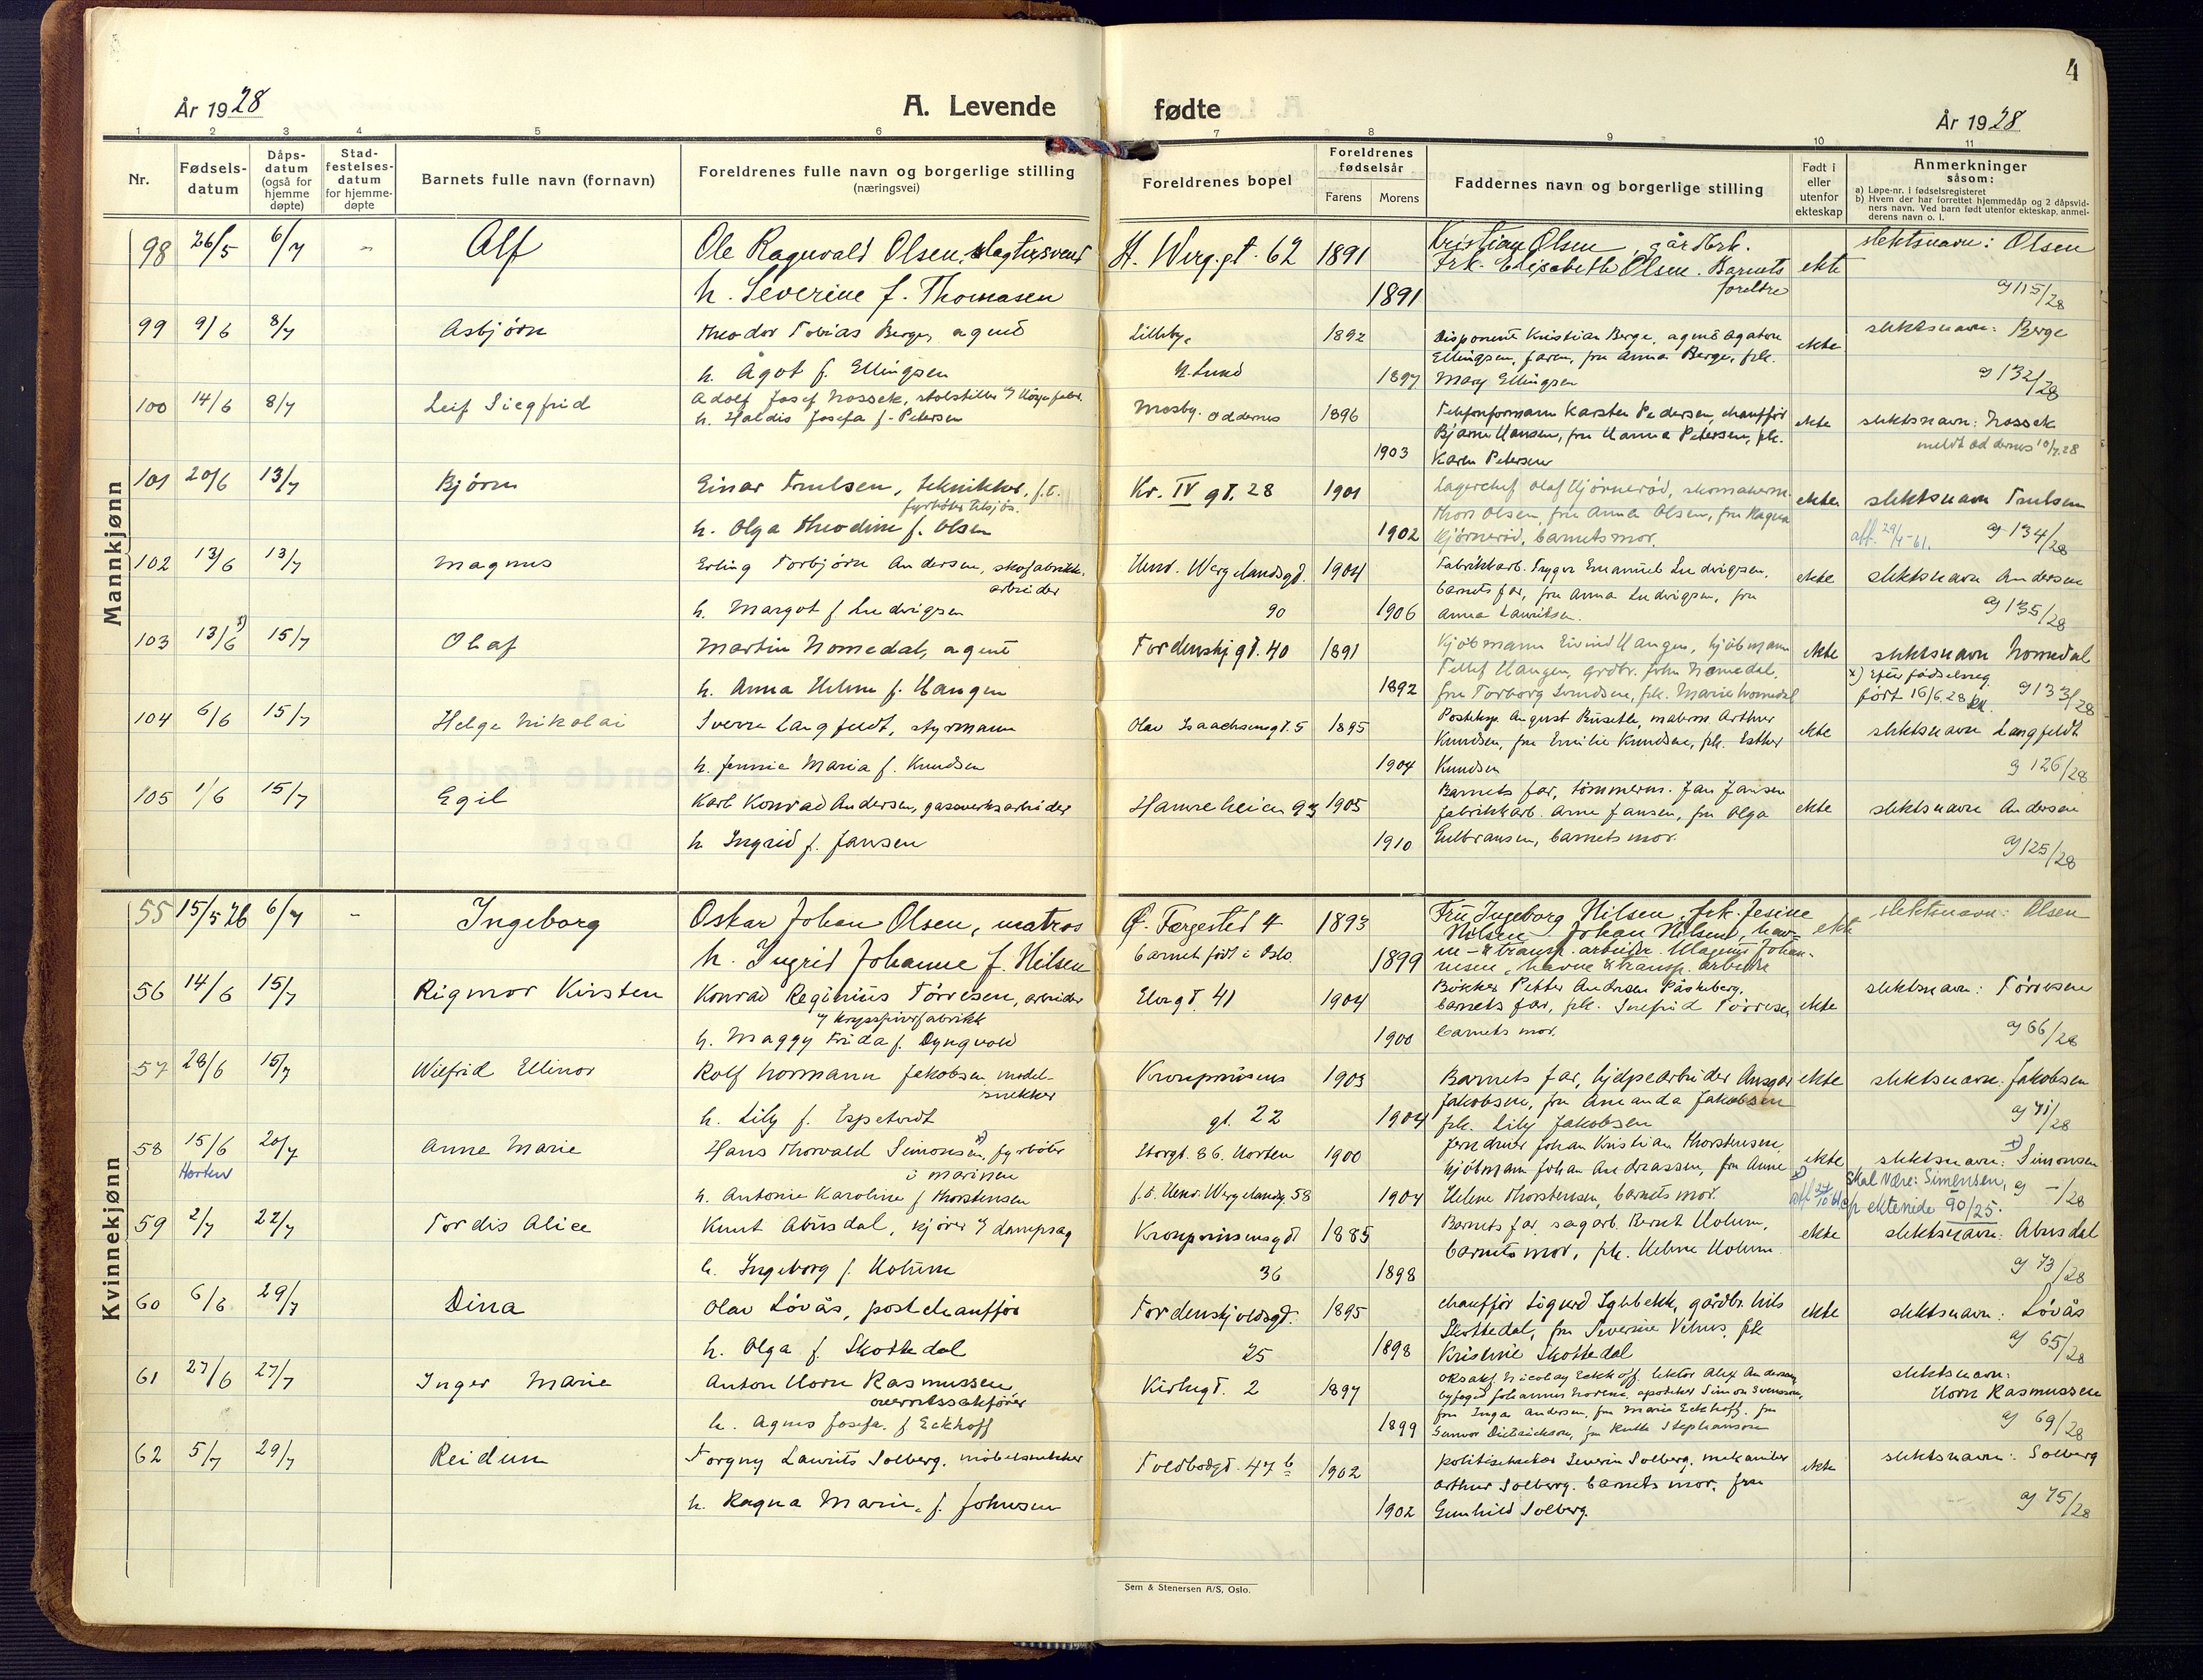 4
År 1928
A. Levende
fødte
År 1928
1 2 3 4 5 6 7 8 9 10 11
Nr.
Fødsels-
datum
Dåps-
datum
(også for
hjemme
døpte)
Stad-
festelses-
datum
for hjemme-
døpte
Barnets fulle navn (fornavn)
Foreldrenes fulle navn og borgerlige stilling
(næringsvei)
Foreldrenes bopel
Foreldrenes
fødselsår
Farens Morens
Faddernes navn og borgerlige stilling
Født i
eller
utenfor
ekteskap
Anmerkninger
såsom:
a) Løpe-nr. i fødselsregisteret
b) Hvem der har forrettet hjemmedåp og 2 dåpsvid-
ners navn. Ved barn født utenfor ekteskap, anmel-
derens navn o. l.
Mannkjønn
98 26/5 6/7 - Alf
Ole Ragnvald Olsen, slagtersvend
h. Severine f. Thomasen
H. Werg.gt. 62 1891
1891
Kristian Olsen, gårdbrk.
Frk. Elisabeth Olsen. Barnets
foreldre
ekte
slektsnavn: Olsen
g 115/28
99 9/6 8/7 Asbjørn
Theodor Tobias Berge, agent
h. Ågot f. Ellingsen
Lilleby,
N. Lund
1892
1897
Disponent Kristian Berge, agent Agaton
Ellingsen, faren, fru Anna Berge, frk.
Mary Ellingsen
ekte
slektsnavn: Berge
g 132/28
100 14/6 8/7 Leif Siegfrid
Adolf Josef Nossek,
h. Haldis Josefa f. Petersen
Mosby. Oddernes 1896
1903
Telefonformann Karsten Pedersen, chauffør
Bjarne Hansen, fru Hanna Petersen, frk.
Karen Petersen
ekte
slektsnavn: Nossek
meldt Oddernes 10/7.28
101 20/6 13/7 Bjørn
Einar Trulsen, tekniker, f.t.
fyrbøter tilsjøs.
h. Olga Theodine f. Olsen
Kr. IV gt. 28 1901
1902
Lagerchef Olaf Kjørnerød, skomakerm.
Thor Olsen, fru Anna Olsen, fru Ragna
Kjørnerød, barnets mor.
ekte
slektsnavn Trulsen
att. 29/4-61. g 134/28
102 13/6 13/7 Magnus
Erling Torbjørn Andersen, skofabrikk-
arbeider
h. Margot f. Ludvigsen
Henr. Wergelandsgt.
90
1904
1906
Fabrikkarb. Trygve Emanuel Ludvigsen,
barnets far, fru Anna Ludvigsen, fru
Anna Lauritsen.
ekte
slektsnavn Andersen
g 135/28
103 13/6 x) 15/7 Olaf
Martin Nomedal, agent
h. Anna Helene f. Haugen
Tordenskj.gt. 40 1891
1892
Kjøbmann Eivind Haugen, kjøbmann
Tellef Haugen, grdbr. John Nomedal,
fru Torborg Svendsen, frk. Marie Nomedal
ekte
slektsnavn Nomedal
x) Efter fødselsreg.
født 16/6.28 g 133/28
104 6/6 15/7 Helge Nikolai
Sverre Langfeldt, styrmann
h. Jennie Maria f. Knudsen
Olav Isaachsensgt. 5 1895
1904
Posteksp. August Buseth, malerm. Arthur
Knudsen, fru Emilie Knudsen, frk. Esther
Knudsen
ekte
slektsnavn Langfeldt
g 126/28
105 1/6 15/7 Egil
Karl Konrad Andersen, gassverksarbeider
h. Ingrid f. Jansen
Hamreheien 93 1905
1910
Barnets far, tømmerm. Jan Jansen
fabrikkarb. Arne Jansen, fru Olga
Gulbransen, barnets mor.
ekte
slektsnavn Andersen
g 125/28
Kvinnekjønn
55 15/5 26 6/7 - Ingeborg
Oskar Johan Olsen, matros
h. Ingrid Johanne f. Nilsen
Ø. Færgested 4
barnet født i Oslo.
1893
1899
Fru Ingeborg Nilsen, frk. Jesine
Nilsen, Johan Nilsen, hav-
ne- & transp. arbeider. Magnus Johan-
nesen, havne & transp. arbeider
ekte
slektsnavn: Olsen
56 14/6 15/7 Rigmor Kirsten
Konrad Reginius Tørresen, arbeider
h. Maggy Frida f. Dyngvold
Elvegt. 41 1904
1900
Bøkker Petter Andersen Påskeberg,
barnets far, frk. Snefrid Tørresen
barnets mor.
ekte
slektsnavn: Tørresen
g 66/28
57 28/6 15/7 Wilfrid Ellinor
Rolf Normann Jakobsen, model-
snekker
h. Lily f. Espetvedt
Kronprinsens
gt. 22
1903
1904
Barnets far, hjelpearbeider Ansgar
Jakobsen, fru Amanda Jakobsen
frk. Lily Jakobsen
ekte
slektsnavn: Jakobsen
g 71/28
58 15/6 20/7 Anne Marie
Horten
Hans Thorvald Simonsen x), fyrbøter
i marinen
h. Antonie Karoline f. Thorstensen
Storgt. 86. Horten 1900
f.t. Henr. Wergelandsg. 58 1904
Jerndreier Johan Kristian Thorstensen,
kjøbmann Johan Andreassen, fru Anne
Helene Thorstensen, barnets mor.
ekte
slektsnavn: x) Simonsen
x) Skal være: Simensen, g -/28
ekteviede 90/25.
59 2/7 22/7 Tordis Alice
Knut Abusdal, kjører v/ dampsag
h. Ingeborg f. Holum
Kronprinsensgt
36
1885
1898
Barnets far, sagarb. Bernt Holum,
barnets mor, frk. Helene Holum
ekte
slektsnavn: Abusdal
g 73/28
60 6/6 29/7 Dina
Olav Løvås, postchauffør
h. Olga f. Skottedal
Tordenskjoldsgt.
25
1895
1898
Chauffør Sigurd Iglebekk, gårdbr. Nils
Skottedal, fru Severine Vehus, frk
Kristine Skottedal
ekte
slektsnavn: Løvås
g 65/28
61 27/6 27/7 Inger Marie
Anton Horn Rasmussen
overrettssakfører
h. Agnes Josefa f. Eckhoff
Kirkegt. 2 1897
1899
Orsakf. Nicolay Eckhoff, lektor Alex Andersen,
byfoged Johannes Norene, apoteker Simon Svensson,
fru Inga Andersen, fru Marie Eckhoff, fru
Gunvor Diedrichson, fru Ruth Stephanson
slektsnavn:
Horn Rasmussen
g 69/28
62 5/7 29/7 Reidun
Torgny Laurits Solberg, møbelsnekker
h. Ragna Marie f. Johnsen
Toldbodgt. 47 b 1902
1902
Politibetjent Severin Solberg, mekaniker
Arthur Solberg, barnets mor, fru
Gunhild Solberg.
ekte
slektsnavn: Solberg
g 75/28
Sem & Stenersen A/S, Oslo.